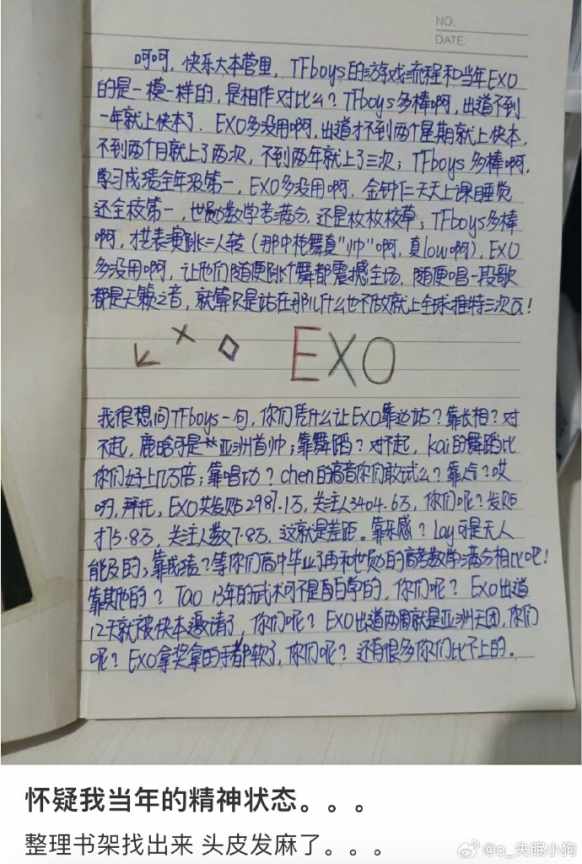 NO.
DATE
呵呵,快乐大本营里,TFboys的游戏流程和当年EXO
的是一模一样的,是相作对比么?TFboys多棒啊,出道不到
一年就上快本了.EXO多没用啊,出道才不到两个星期就上快本,
不到两个月就上了两次,不到两年就上了三次;TFboys多棒啊,
学习成绩全年级第一,EXO多没用啊,金钟仁天天上课睡觉
还全校第一,世勋数学考满分,还是枚枚校草;TFboys多棒
啊,才艺表演跳二人转(那中枪舞真"帅"啊,真low啊),EXO
多没用啊,让他们随便跳个舞都震撼全场,随便唱一段歌
都是天籁之音,就算只是站在那儿什么也不做就上全球推特三次百!
EXO
我很想问TFboys一句,你们凭什么让EXO靠边站?靠长相?对
不起,鹿晗可是**亚洲首帅;靠舞蹈?对不起,kai的舞蹈比
你们好上几万倍;靠唱功?chen的高音你们敢试么?靠人气?哎
哟,拜托,EXO共发贴2981.1万,关注人3404.6万,你们呢?发贴
才15.8万,关注人数7.8万,这就是差距。靠乐感?lay可是无人
能及的;靠成绩?等你们高中毕业了再和世勋的高考数学满分相比吧!
靠其他的?Tao 13年的武术可不是白学的,你们呢?EXO出道
12天就被快本邀请了,你们呢?EXO出道两周就是亚洲天团,你们
呢?EXO拿奖拿的手都软了,你们呢?还有很多你们比不上的。
怀疑我当年的精神状态。。。
整理书架找出来 头皮发麻了。。。
@o_失眠小狗